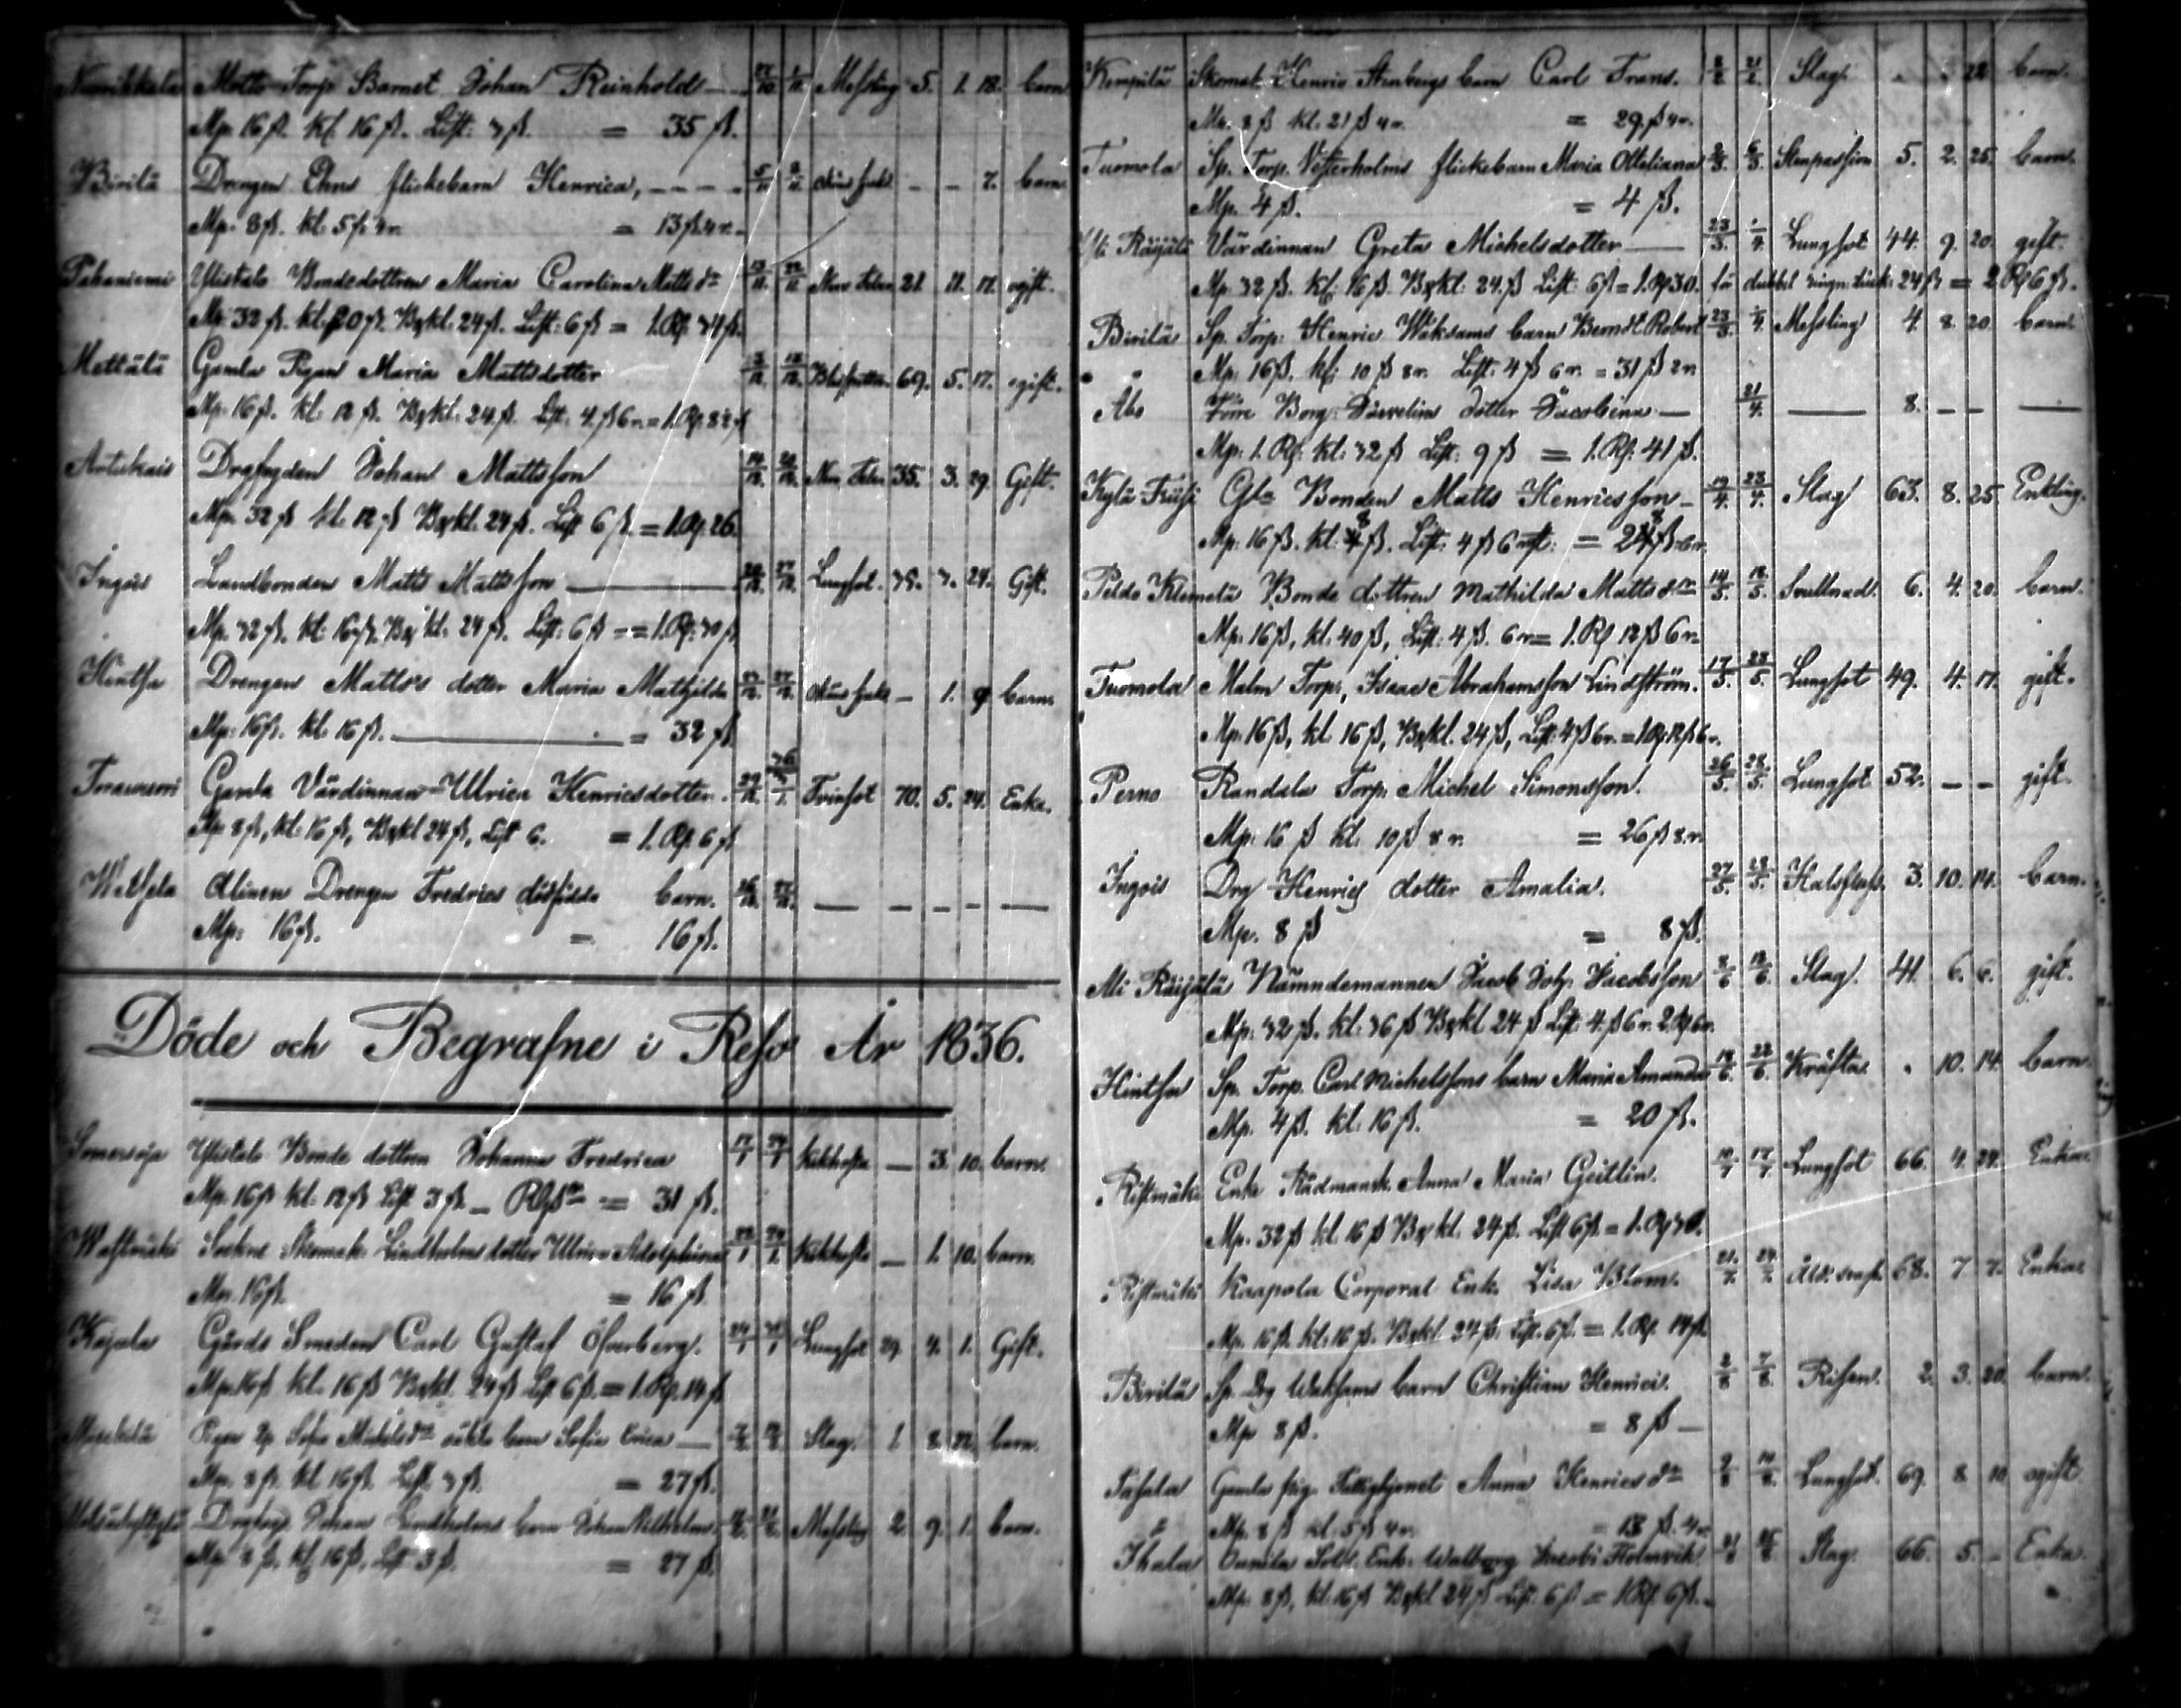 Nuorikkala Matts Torp. Barnet Johan Reinhold 27/10 1/11 Messling 5. 1. 18. barn
Mp. 16 ß. kl. 16 ß. Lift: 3 ß. = 35 ß.
Birilä Drengen Ehns flickebarn Henrica, 5/11 8/11 – – 7. barn
Mp. 8 ß. kl. 5 ß. 4 r. = 13 ß. 4 r.
Pahaniemi Ylistalo Bondedottren Maria Carolina Matts dr 13/11 22/11 Nerv Feber 21. 11. 17. ogift.
Mp. 32 ß. kl. 20 ß. Bykl. 24 ß. Lift: 6 ß = 1. Rp. 34 ß.
Mettälä Gamla Pigan Maria Mattsdotter 69. 5. 17. ogift.
Mp. 16 ß. kl. 12 ß. Bykl. 24 ß. Lift: 4 ß 6 r. = 1. Rp. 8
Artukais Drgfogden Johan Mattsson Nerv Feber 35. 3. 29. Gift.
Mp. 32 ß kl. 12 ß Bykl. 24 ß. Lift 6 ß. = 1. Rp. 26.
Ingois Landbonden Matts Mattsson Lungsot. 35. 3. 24. Gift.
Mp. 32 ß. kl. 16 ß. Bykl. 24 ß. Lift: 6 ß = 1. Rp. 30 ß
Hintsa Drengen Matts's dotter Maria Mathilda – 1. 9 barn
Mp. 16 ß. kl. 16 ß. = 32 ß
Gamla Värdinnan Ulrica Henricsdotter. Tvinsot 70. 5. 24. Enka.
Mp. 8 ß, kl. 16 ß, Bykl. 24 ß, Lift 6. = 1. Rp. 6 ß
Alinen Drengen Fredrics dödfödda barn. — — — —
Mp: 16 ß. = 16 ß.
Döde och Begrafne i Reso År 1836.
Somersoja Ylistalo Bonde dottren Johanna Fredrica 17/1 24/1 Kikhosta — 3. 10. barn.
Mp. 16 ß kl. 12 ß Lift 3 ß. = 31 ß.
Sockne Skomak. Lindholms dotter Ulrica Adolphina 22/1 24/1 Kikhosta — 1. 10. barn.
Mp. 16 ß. = 16 ß.
Kajala Gårds Smeden Carl Gustaf Öfverberg. 24/1 31/1 Lungsot 29. 4. 1. Gift.
Mp. 16 ß kl. 16 ß Bykl. 24 ß Lift 6 ß. = 1. Rp. 14 ß
Pigan Sofia Michelsdr oäkta barn Sofia Erica — Slag. 1 8. 22. barn.
Mp. 8 ß. kl. 16 ß. Lift. 3 ß. = 27 ß.
Johan Lindholms barn Johan Wilhelm. Messling 2. 9. 1. barn.
Mp. 8 ß, kl. 16 ß, Lift 3 ß. = 27 ß.
Kempilä Skomak. Henric Stenbergs barn Carl Frans. 8/2 21/2 Slag. 22 barn.
Mp. 8 ß kl. 21 ß 4 r. = 29 ß 4 r.
Tuomola Sp. Torp. Vesterholms flickebarn Maria Ottiliana 2/3 6/3 Stenpassion 5. 2. 25. barn.
Mp. 4 ß. = 4 ß.
Yli Räijälä Värdinnan Greta Michelsdotter 23/3 1/4 Lungsot 44. 9. 20. gift.
Mp. 32 ß. kl. 16 ß. Bykl. 24 ß Lift 6 ß = 1. Rp 30. för dubbel 24 ß = 2 Rp 6 ß.
Birilä Sp. Torp. Henric Waksams barn Berndt Robert 23/3 1/4 Messling 4. 8. 20. barn.
Mp. 16 ß. kl. 10 ß 8 r. Lift. 4 ß 6 r. = 31 ß 2 r.
Åbo Borg. Järvelins dotter Jacobina 21/4 — 8. – – —
Mp. 1. Rp. kl. 32 ß Lift. 9 ß = 1. Rp. 41 ß.
Kylä Frusi Gla Bonden Matts Henricsson 19/4 23/4 Slag 63. 8. 25. Enkling.
Mp. 16 ß. kl. 8 ß. Lift. 4 ß 6 = 28 ß 6 r.
Peldo Klemetä Bonde dottren Mathilda Matts dr 14/5 18/5 Svullnad. 6. 4. 20. barn.
Mp. 16 ß, kl. 40 ß, Lift. 4 ß. 6 r = 1. Rp 12 ß 6 r
Tuomola Malm Torp., Isaac Abrahamsson Lindström. 17/5 23/5 Lungsot 49. 4. 17. gift.
Mp. 16 ß, kl. 16 ß, Bykl. 24 ß, Lift 4 ß 6 r. = 1 Rp 12 ß 6 r.
Perno Randala Torp. Michel Simonsson. 26/5 28/5 Lungsot 52. – – gift.
Mp. 16 ß kl. 10 ß 8 r. = 26 ß 8 r.
Ingois Drg Henrics dotter Amalia. 27/5 28/5 Halsfluss. 3. 10. 14. barn.
Mp. 8 ß = 8 ß.
Ali Räijälä Nämndemannen Jacob Joh. Jacobsson 8/6 12/6 Slag. 41. 6. 6. gift.
Mp. 32 ß. kl. 36 ß Bykl. 24 ß Lift. 4 ß 6 r. 2 Rp 6 r.
Hintsa Sp. Torp. Carl Michelssons barn Maria Amanda 18/6 22/6 Kräfta. 10. 14. barn.
Mp. 4 ß. kl. 16 ß. = 20 ß.
Ristmäki Enk. Rådmansk. Anna Maria Geitlin. 10/7 17/7 Lungsot 66. 4. 24. Enka.
Mp. 32 ß kl. 16 ß Bykl. 24 ß. Lift 6 ß. = 1. Rp 30.
Ristmäki Kaapola Corporal Enk. Lisa Blom. 21/7 24/7 68. 7. 7. Enka.
Mp. 16 ß. kl. 16 ß. Bykl. 24 ß. Lift. 6 ß. = 1. Rp. 14 ß
Birilä Sp. Drg Waksams barn Christian Henrici. 2/8 7/8 Risen. 2. 3. 20. barn.
Mp 8 ß. = 8 ß —
Tahala Gamla pig. Fattighjonet Anna Henricsdr 9/8 14/8 Lungsot. 69. 8. 10. ogift.
Mp. 8 ß kl. 5 ß 4 r. = 13 ß. 4 r.
Ihala Gamla Sold. Enk. Walborg Jacobi Holmvik Slag. 66. 5. – Enka.
Mp. 8 ß, kl. 16 ß Bykl 24 ß Lift. 6 ß = 1 Rp. 6 ß.